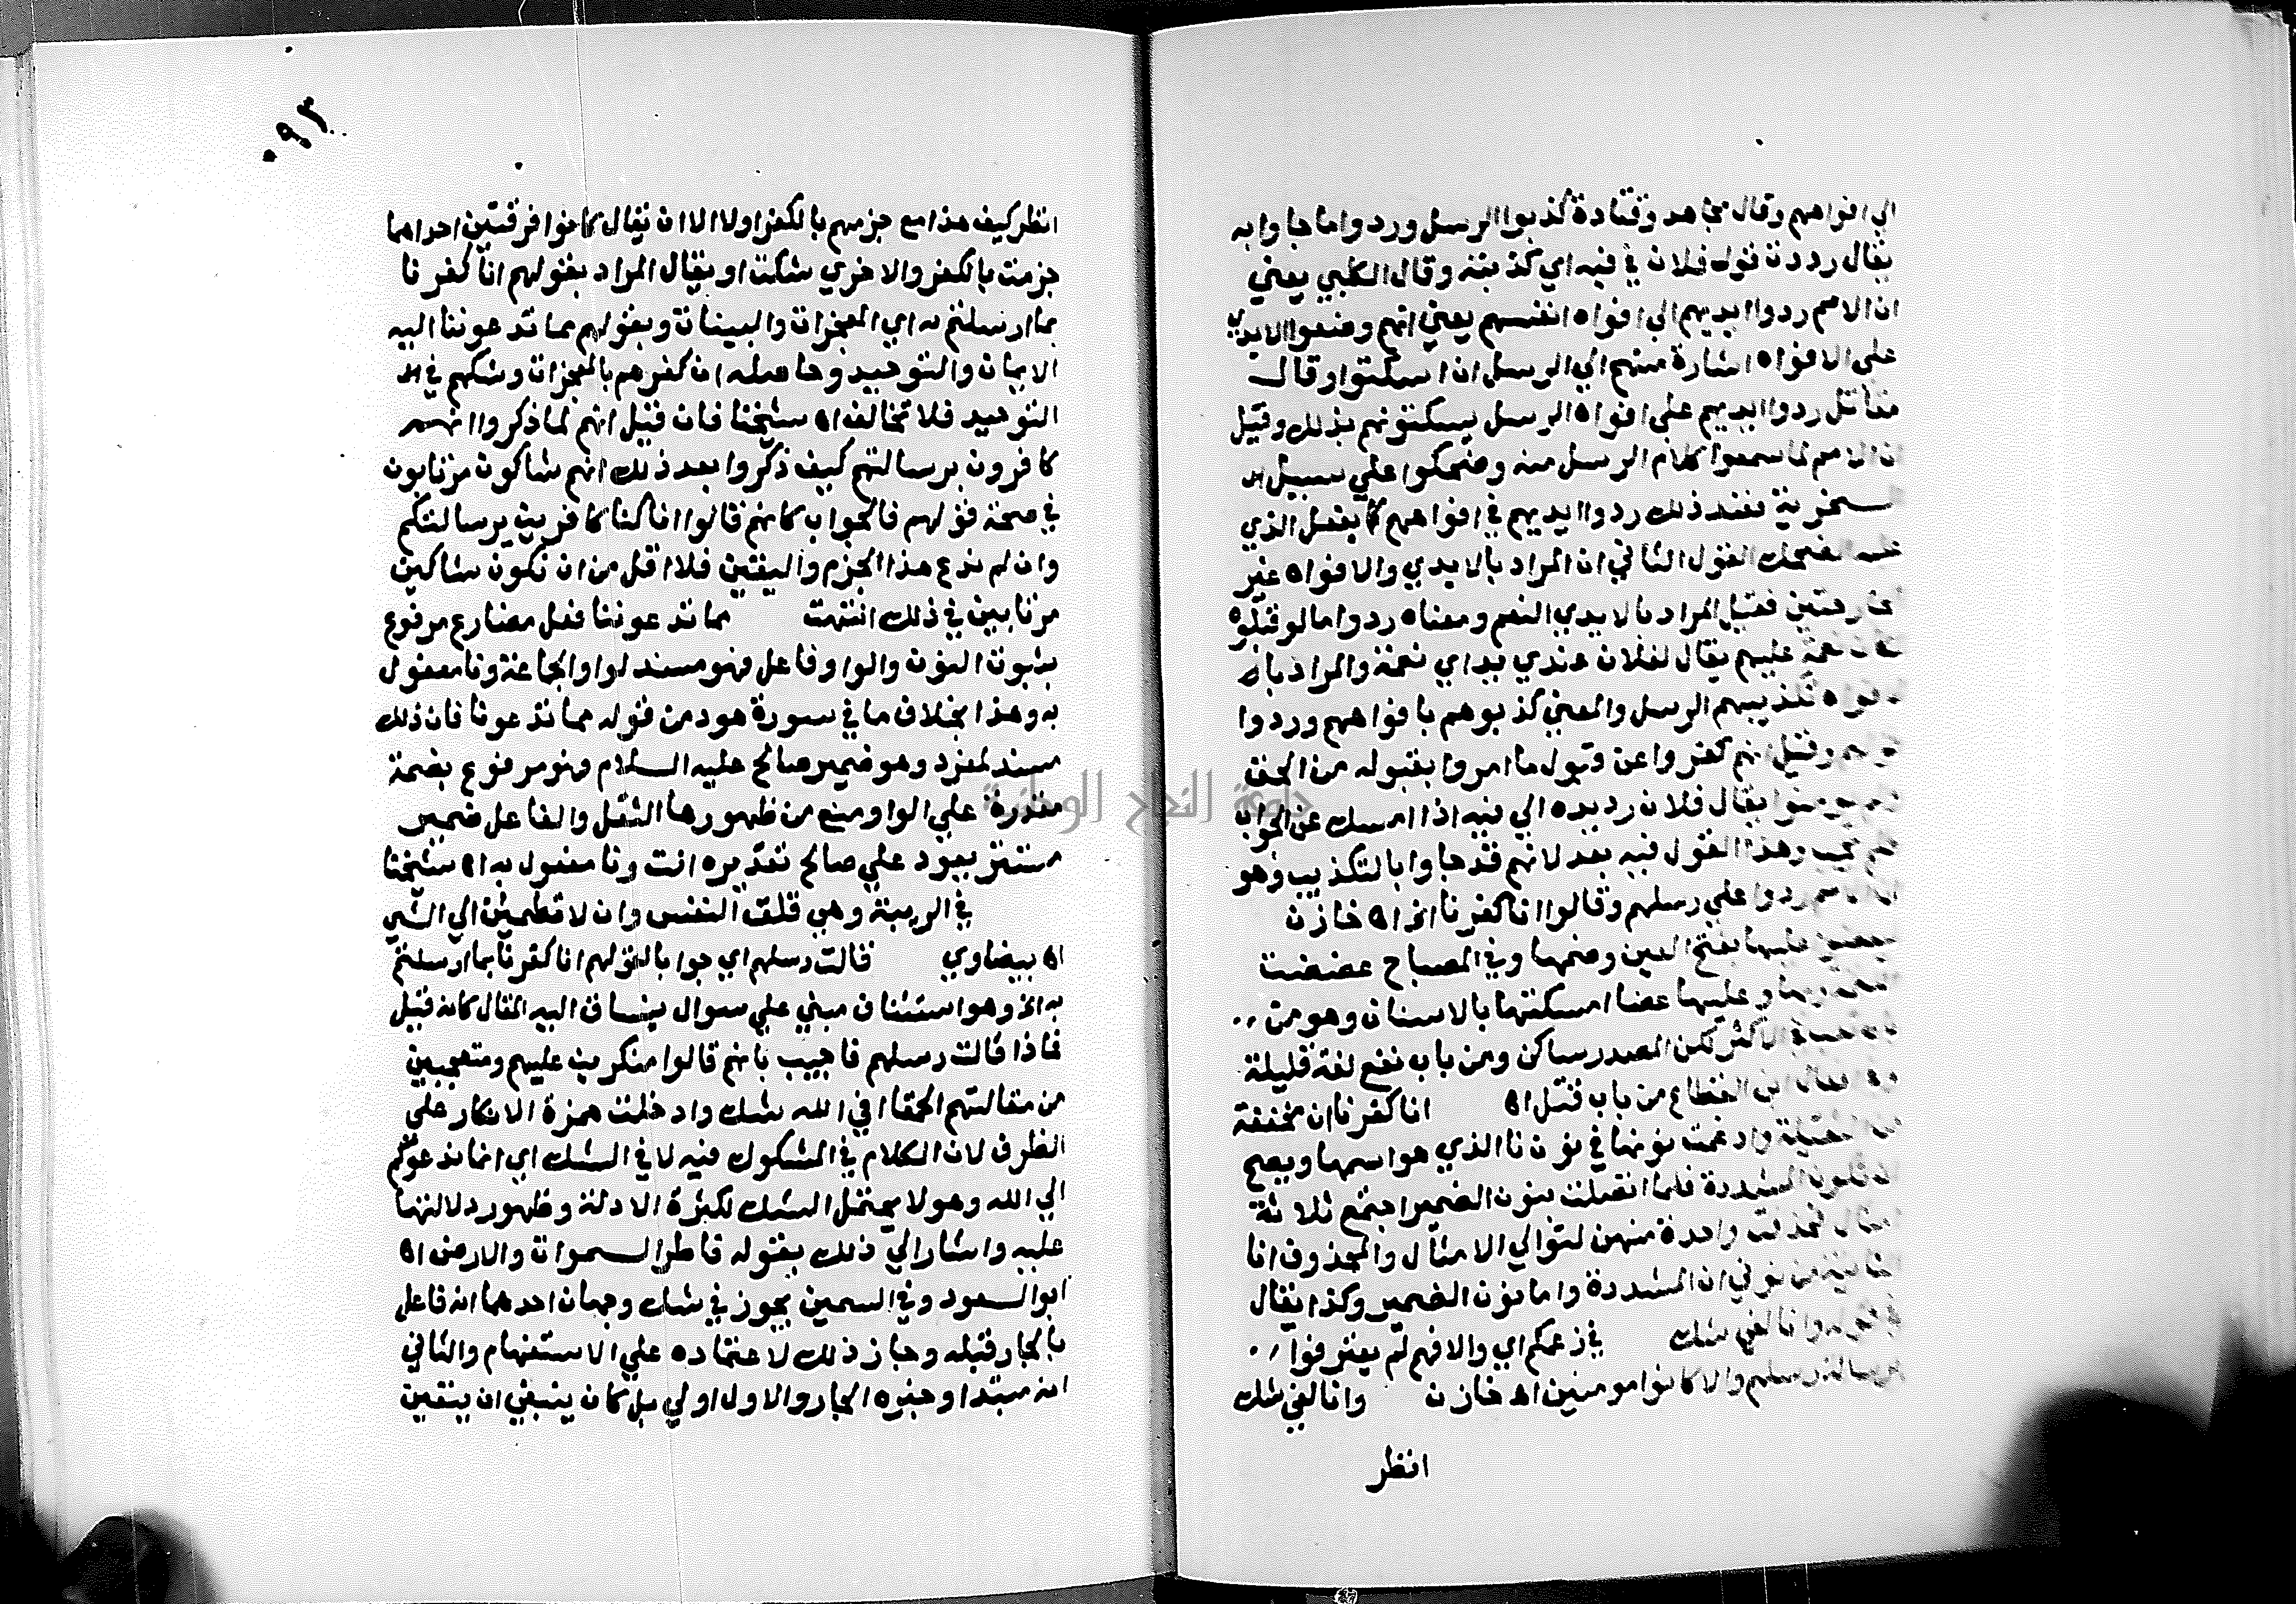 الي افواههم وقال مجاهد وقتادة كذبوا الرسل وردوا ما جاوا به
يقال رددت قول فلان في فيه اي كذبته وقال الكلبي يعني
ان الامم ردوا ايديهم الي افواه انفسهم يعني انهم وضعوا الايدي
علي الافواه اشارة منهم الي الرسل ان اسكتوا وقال
مقاتل ردوا ايديهم علي افواه الرسل يسكتونهم بذلك وقيل
ان الامم لما سمعوا كلام الرسل منه وضحكوا علي سبيل الا
السخرية فعند ذلك ردوا ايديهم في افواههم كما يفعل الذي
غلبه الضحك القول الثاني ان المراد بالايدي والافواه غير
الجارحتين فقيل المراد بالايدي النعم ومعناه ردوا ما لو قبلوه
كان نعمة عليهم يقال لفلان عندي يد اي نعمة والمراد بالا
فواه تكذيبهم الرسل والمعني كذبوهم بافواههم وردوا
قولهم وقيل انهم كفروا عن قبول ما امروا بقبوله من الحق
ولم يومنوا يقال فلان رد يده الي فيه اذا امسك عن الجواب
فلم يجب وهذا القول فيه بعد لانهم قد جاوا بالتكذيب وهو
ان الامم ردوا علي رسلهم وقالوا انا كفرنا الخ اه خازن
ليعضوا عليها بفتح العين وضمها وفي المصباح عضضت
اللقمة وبها وعليها عضا امسكتها بالاسنان وهو من
باب تعب في الاكثر لكن المصدر ساكن ومن باب نفع لغة قليلة
وفي افعال ابن القطاع من باب قتل اه انا كفرنا ان مخففة
من الثقيلة وادغمت نونها في نون نا الذي هو اسمها ويصح
ان تكون المشددة فلما اتصلت بنون الضمير اجتمع ثلاثة
امثال فحذفت واحدة منهن لتوالي الامثال والمحذوف انا
الثانية من نوني ان المشددة واما نون الضمير وكذا يقال
في قوله وانا لفي شك في زعمكم اي والا فهم لم يعترفوا
برسالة رسلهم والا كانوا مومنين اه خازن وانا لفي شك
انظر
٠٩٣
انظر كيف هذا مع جزمهم بالكفر اولا الا ان يقال كانوا فرقتين احداهما
جزمت بالكفر والاخري شكت او يقال المراد بقولهم انا كفرنا
بما ارسلتم به اي المعجزات والبينات وبقولهم مما تدعوننا اليه
الايمان والتوحيد وحاصله ان كفرهم بالمعجزات وشكهم في الا
التوحيد فلا تخالف اه شيخنا فان قيل انهم لما ذكروا انهم
كافرون برسالتهم كيف ذكروا بعد ذلك انهم شاكون مرتابون
في صحة قولهم فالجواب كانهم قالوا انا كنا كافرين برسالتكم
وان لم ندع هذا الجزم واليقين فلا اقل من ان نكون شاكين
مرتابين في ذلك انتهت مما تدعوننا فعل مضارع مرفوع
بثبوت النون والواو فاعل فهو مسند لواو الجماعة ونا مفعول
به وهذا بخلاف ما في سورة هود من قوله مما تدعونا فان ذلك
مسند لمفرد وهو ضمير صالح عليه السلام وهو مرفوع بضمة
مقدرة علي الواو منع من ظهورها الثقل والفاعل ضمير
مستتر يعود علي صالح تقديره انت ونا مفعول به اه شيخنا
في الريبة وهي قلق النفس وان لا تطمئن الي الشي
اه بيضاوي قالت رسلهم اي جوابا لقولهم انا كفرنا بما ارسلتم
به الخ وهو استئناف مبني علي سوال ينساق اليه المقال كانه قيل
فماذا قالت رسلهم فاجيب بانهم قالوا منكرين عليهم ومتعجبين
من مقالتهم الحمقا افي الله شك وادخلت همزة الانكار علي
الظرف لان الكلام في المشكوك فيه لا في الشك اي انما ندعوكم
الي الله وهو لا يحتمل الشك لكثرة الادلة وظهور دلالتها
عليه واشار الي ذلك بقوله فاطر السموات والارض اه
ابو السعود وفي السمين يجوز في شك وجهان احدهما انه فاعل
بالجار قبله وجاز ذلك لاعتماده علي الاستفهام والثاني
انه مبتدا وخبره الجار والاول اولي بل كان ينبغي ان يتعين
جامعة النجاح الوطنية